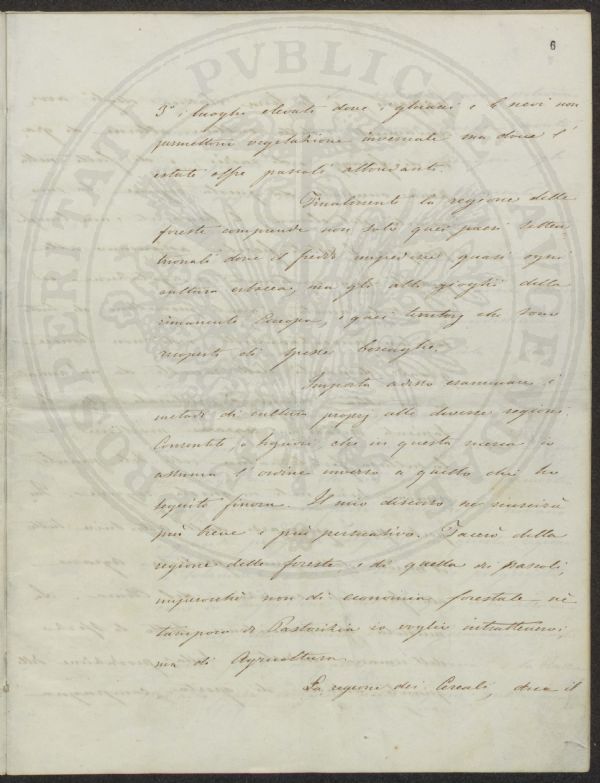 6
3° i luoghi elevati dove i ghiacci e le nevi non
permettono vegetazione invernale ma dove l'
estate offre pascoli abbondanti.
Finalmente la regione delle
foreste comprende non solo quei paesi setten
trionali dove il freddo impedisce quasi ogni
coltura erbacea, ma gli alti gioghi della
rimanente Europa, e quei territorj che sono
ricoperti di spesse boscaglie.
Importa adesso esaminare i
metodi di cultura proprj alle diverse regioni.
Consentite, o Signori, che in questa ricerca io
assuma l'ordine inverso a quello che ho
seguito finora. Il mio discorso ne riuscirà
più breve e più persuasivo. Tacerò della
regione delle foreste, e di quella dei pascoli,
imperocchè non di economia forestale nè
tampoco di Pastorizia io voglio intrattenervi,
ma di Agricoltura.
La regione dei Cereali, dice il
PROSPERITATI PVBLICAE AVGENDAE